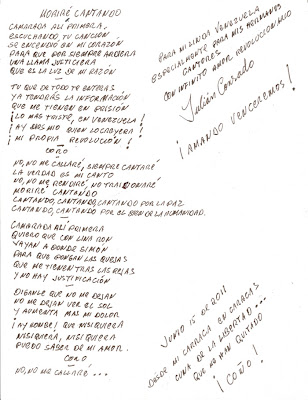 MORIRÉ CANTANDO
CAMARADA ALÍ PRIMERA,
ESCUCHANDO, TU CANCIÓN
SE ENCENDIÓ EN MI CORAZÓN
PARA QUE POR SIEMPRE ARDIERA
UNA LLAMA JUSTICIERA
QUE ES LA LUZ DE MI RAZÓN
TU QUE DE TODO TE ENTERAS
YA TENDRÁS LA INFORMACIÓN
QUE ME TIENEN EN PRISIÓN
¡LO MAS TRISTE, EN VENEZUELA!
¡AY DIOS MIO QUIEN LO CREYERA!
¡MI PROPIA REVOLUCIÓN!
COÑO
NO, NO ME CALLARÉ, SIEMPRE CANTARÉ
LA VERDAD ES MI CANTO
NO, NO ME RENDIRÉ, NO TRAICIONARÉ
MORIRÉ CANTANDO
CANTANDO, CANTANDO, CANTANDO POR LA PAZ
CANTANDO, CANTANDO POR EL BIEN DE LA HUMANIDAD.
CAMARADA ALÍ PRIMERA
QUIERO QUE CON LINA RON
VAYAN A DONDE SIMÓN
PARA QUE PONGAN LAS QUEJAS
QUE ME TIENEN TRAS LAS REJAS
Y NO HAY JUSTIFICACIÓN
DIGANLE QUE NO ME DEJAN
NO ME DEJAN VER EL SOL
Y AUMENTA MAS MI DOLOR
¡AY HOMBE! QUE NISIQUIERA
NISIQUIERA, NISIQUIERA
PUEDO SABER DE MI AMOR.
COÑO
NO, NO ME CALLARÉ ...
PARA MI LINDA VENEZUELA
ESPECIALMENTE PARA MIS HERMANOS
CANTORES
CON INFINITO AMOR REVOLUCIONARIO
Julián Conrado
¡AMANDO VENCEREMOS!
JUNIO 15 DE 2011
DESDE MI CARRACA EN CARACAS
CUNA DE LA LIBERTAD...
QUE ME HAN QUITADO
¡COÑO!